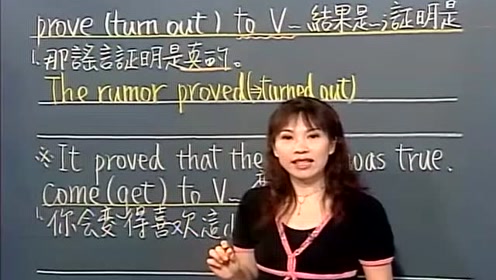 prove (turn out) to V_ 結果是…；証明是
1. 那謠言証明是真的。
The rumor proved(=turned out)
※ It proved that the was true.
come (get) to V_
1. 你会变得喜欢這